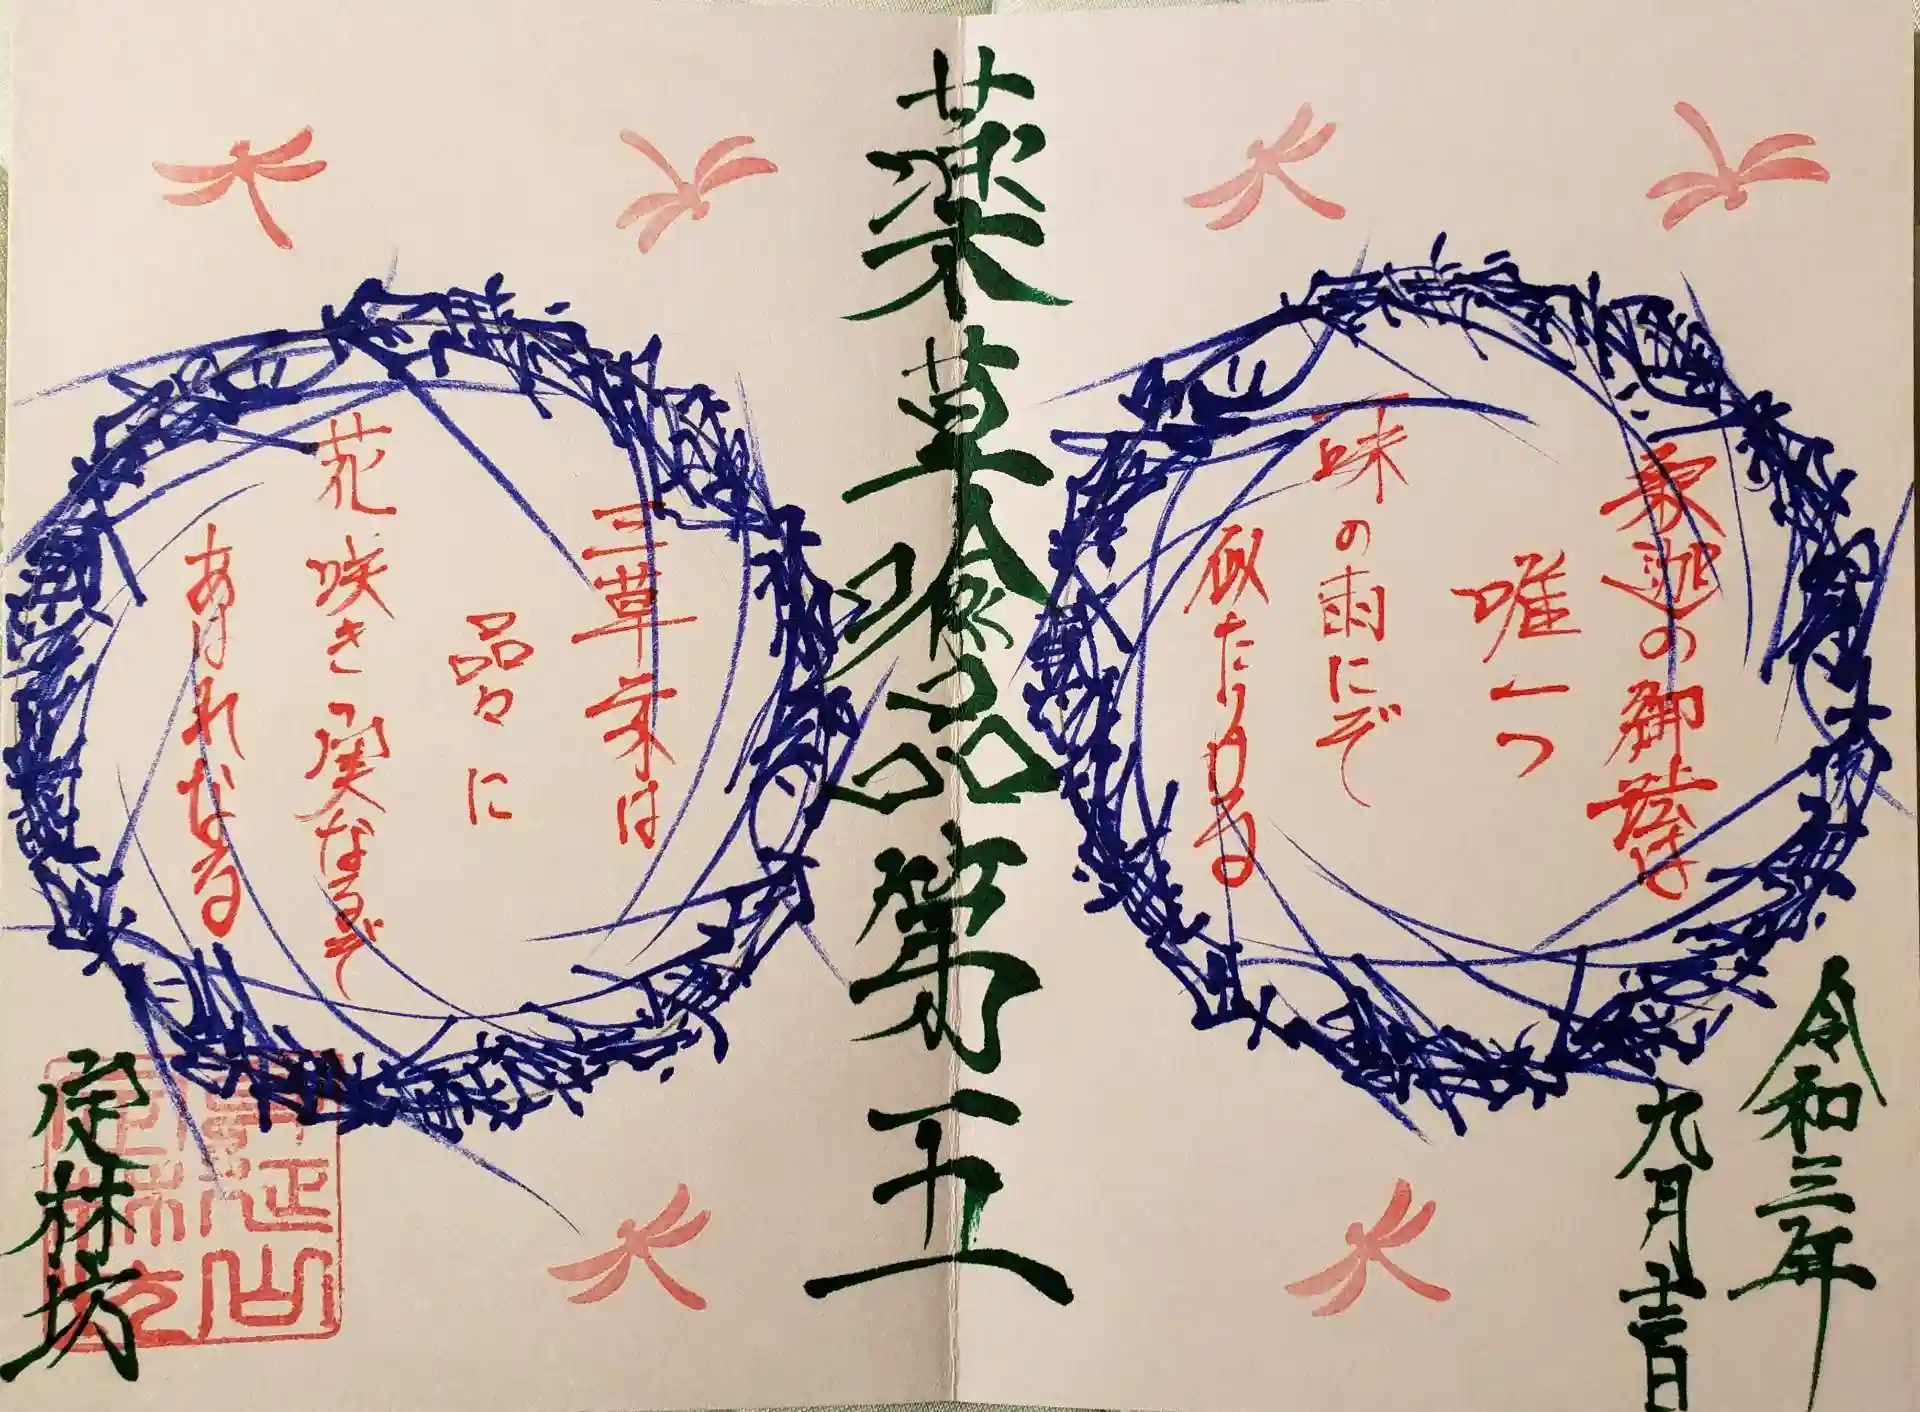 薬草喩品第五
令和三年
九月
釈迦の御法は
唯一つ
一味の雨にぞ
似たりける
三草二木は
品々に
花咲き実なるぞ
あはれなる
定林坊